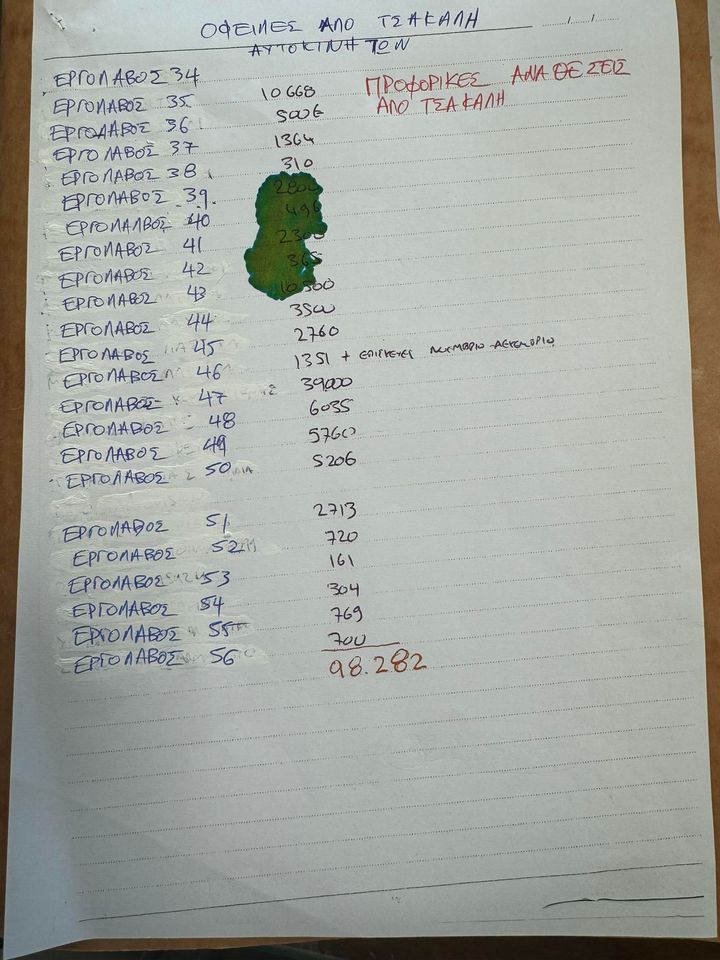 ΟΦΕΙΛΕΣ ΑΠΟ ΤΣΑΚΑΛΗ
ΑΥΤΟΚΙΝΗΤΩΝ
ΕΡΓΟΛΑΒΟΣ 34
ΕΡΓΟΛΑΒΟΣ 35 10668 ΠΡΟΦΟΡΙΚΕΣ ΑΝΑΘΕΣΕΙΣ
ΕΡΓΟΛΑΒΟΣ 36 500€ ΑΠΟ ΤΣΑΚΑΛΗ
ΕΡΓΟΛΑΒΟΣ 37 1364
ΕΡΓΟΛΑΒΟΣ 38 310
ΕΡΓΟΛΑΒΟΣ 39 2800
ΕΡΓΟΛΑΛΒΟΣ 40 496
ΕΡΓΟΛΑΒΟΣ 41 2300
ΕΡΓΟΛΑΒΟΣ 42 365
ΕΡΓΟΛΑΒΟΣ 43 10500
ΕΡΓΟΛΑΒΟΣ 44 3500
ΕΡΓΟΛΑΒΟΣ 45 2760
ΕΡΓΟΛΑΒΟΣ 46 1351 + ΕΠΙΣΚΕΥΕΣ ΝΟΕΜΒΡΙΟ-ΔΕΚΕΜΒΡΙΟ
ΕΡΓΟΛΑΒΟΣ 47 39000
ΕΡΓΟΛΑΒΟΣ 48 6035
ΕΡΓΟΛΑΒΟΣ 49 5760
ΕΡΓΟΛΑΒΟΣ 50 5206
ΕΡΓΟΛΑΒΟΣ 51 2713
ΕΡΓΟΛΑΒΟΣ 52 720
ΕΡΓΟΛΑΒΟΣ 53 161
ΕΡΓΟΛΑΒΟΣ 54 304
ΕΡΓΟΛΑΒΟΣ 55 769
ΕΡΓΟΛΑΒΟΣ 56 700
98.282